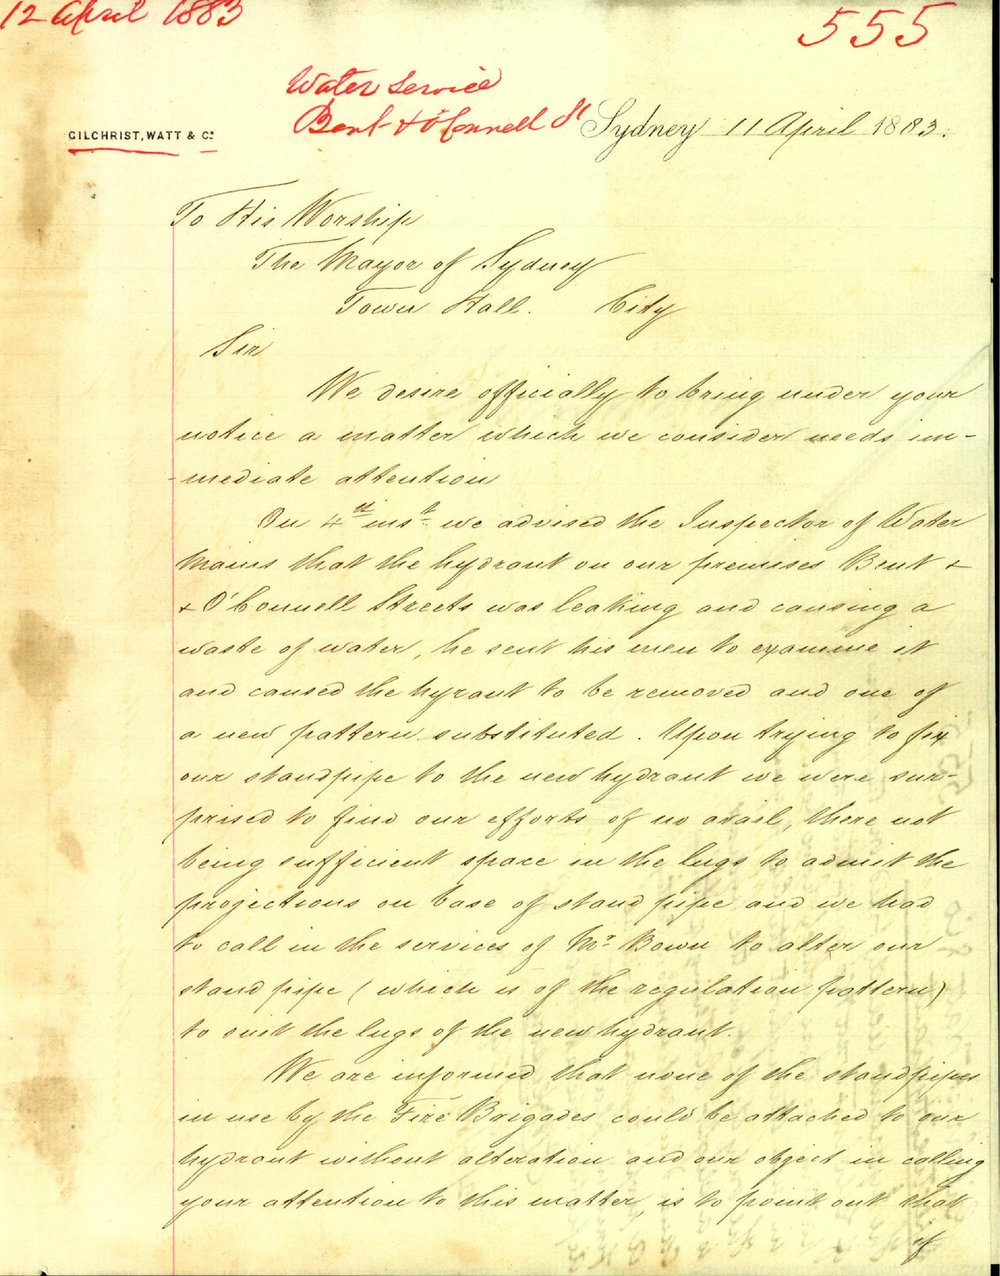 12 April 1883
555
Water Service
Bent & O'Connell St
GILCHRIST, WATT & Co.
Sydney 11 April 1883.
To His Worship
The Mayor of Sydney
Town Hall. City
Sir
We desire officially to bring under your
notice a matter which we consider needs im-
-mediate attention
On 4th inst. we advised the Inspector of Water
Mains that the hydrant on our premises Bent &
& O'Connell Streets was leaking and causing a
waste of water, he sent his men to examine it
and caused the hyrant to be removed and one of
a new pattern substituted. Upon trying to fix
our standpipe to the new hydrant we were sur-
prised to find our efforts of no avail, there not
being sufficient space in the lugs to admit the
projections on base of stand pipe and we had
to call in the services of Mr Bown to alter our
stand pipe (which is of the regulation pattern)
to suit the lugs of the new hydrant.
We are informed that none of the standpipes
in use by the Fire Brigades could be attached to our
hydrant without alteration and our object in calling
your attention to this matter, is to point out that
if